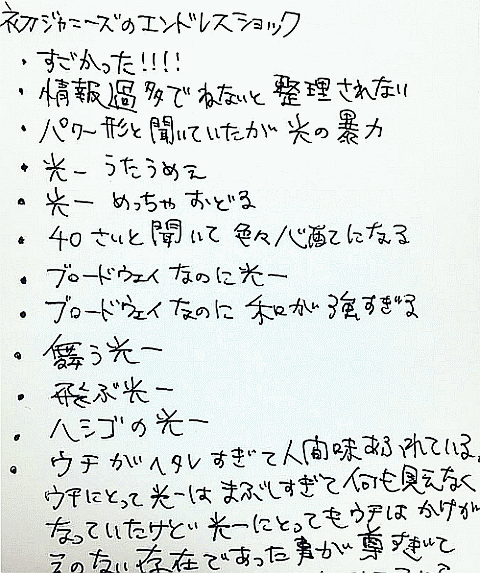 初ジャニーズのエンドレスショック
・すごかった!!!!
・情報過多でねないと整理されない
・パワー形と聞いていたが光の暴力
・光一 うたうめぇ
・光一 めっちゃおどる
・40さいと聞いて色々心配になる
・ブロードウェイなのに光一
・ブロードウェイなのに和が強すぎる
・舞う光一
・飛ぶ光一
・ハシゴの光一
・ウチがヘタレすぎて人間味あふれている。
ウチにとって光一はまぶしすぎて何も見えなく
なっていたけど光一にとってもウチはかけが
えのない存在であった事が尊すぎて